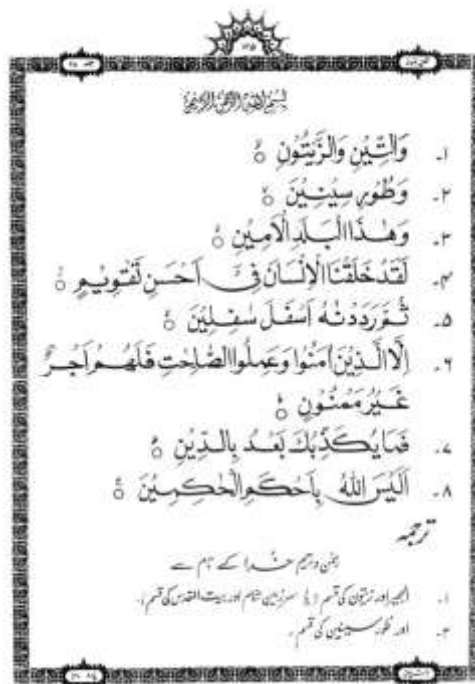 ۱۳۵
بسم الله الرحمن الرحيم
۱۔ وَالتِّيْنِ وَالزَّيْتُوْنِ ۝
۲۔ وَطُوْرِ سِيْنِيْنَ ۝
۳۔ وَهٰذَا الْبَلَدِ الْاَمِيْنِ ۝
۴۔ لَقَدْ خَلَقْنَا الْاِنْسَانَ فِيْٓ اَحْسَنِ تَقْوِيْمٍ ۝
۵۔ ثُمَّ رَدَدْنٰهُ اَسْفَلَ سٰفِلِيْنَ ۝
۶۔ اِلَّا الَّذِيْنَ اٰمَنُوْا وَعَمِلُوا الصّٰلِحٰتِ فَلَهُمْ اَجْرٌ
غَيْرُ مَمْنُوْنٍ ۝
۷۔ فَمَا يُكَذِّبُكَ بَعْدُ بِالدِّيْنِ ۝
۸۔ اَلَيْسَ اللّٰهُ بِاَحْكَمِ الْحٰكِمِيْنَ ۝
ترجمہ
رحمٰن و رحیم خدا کے نام سے
۱۔ انجیر اور زیتون کی قسم (یا سرزمین شام اور بیت المقدس کی قسم)۔
۲۔ اور طور سینین کی قسم۔